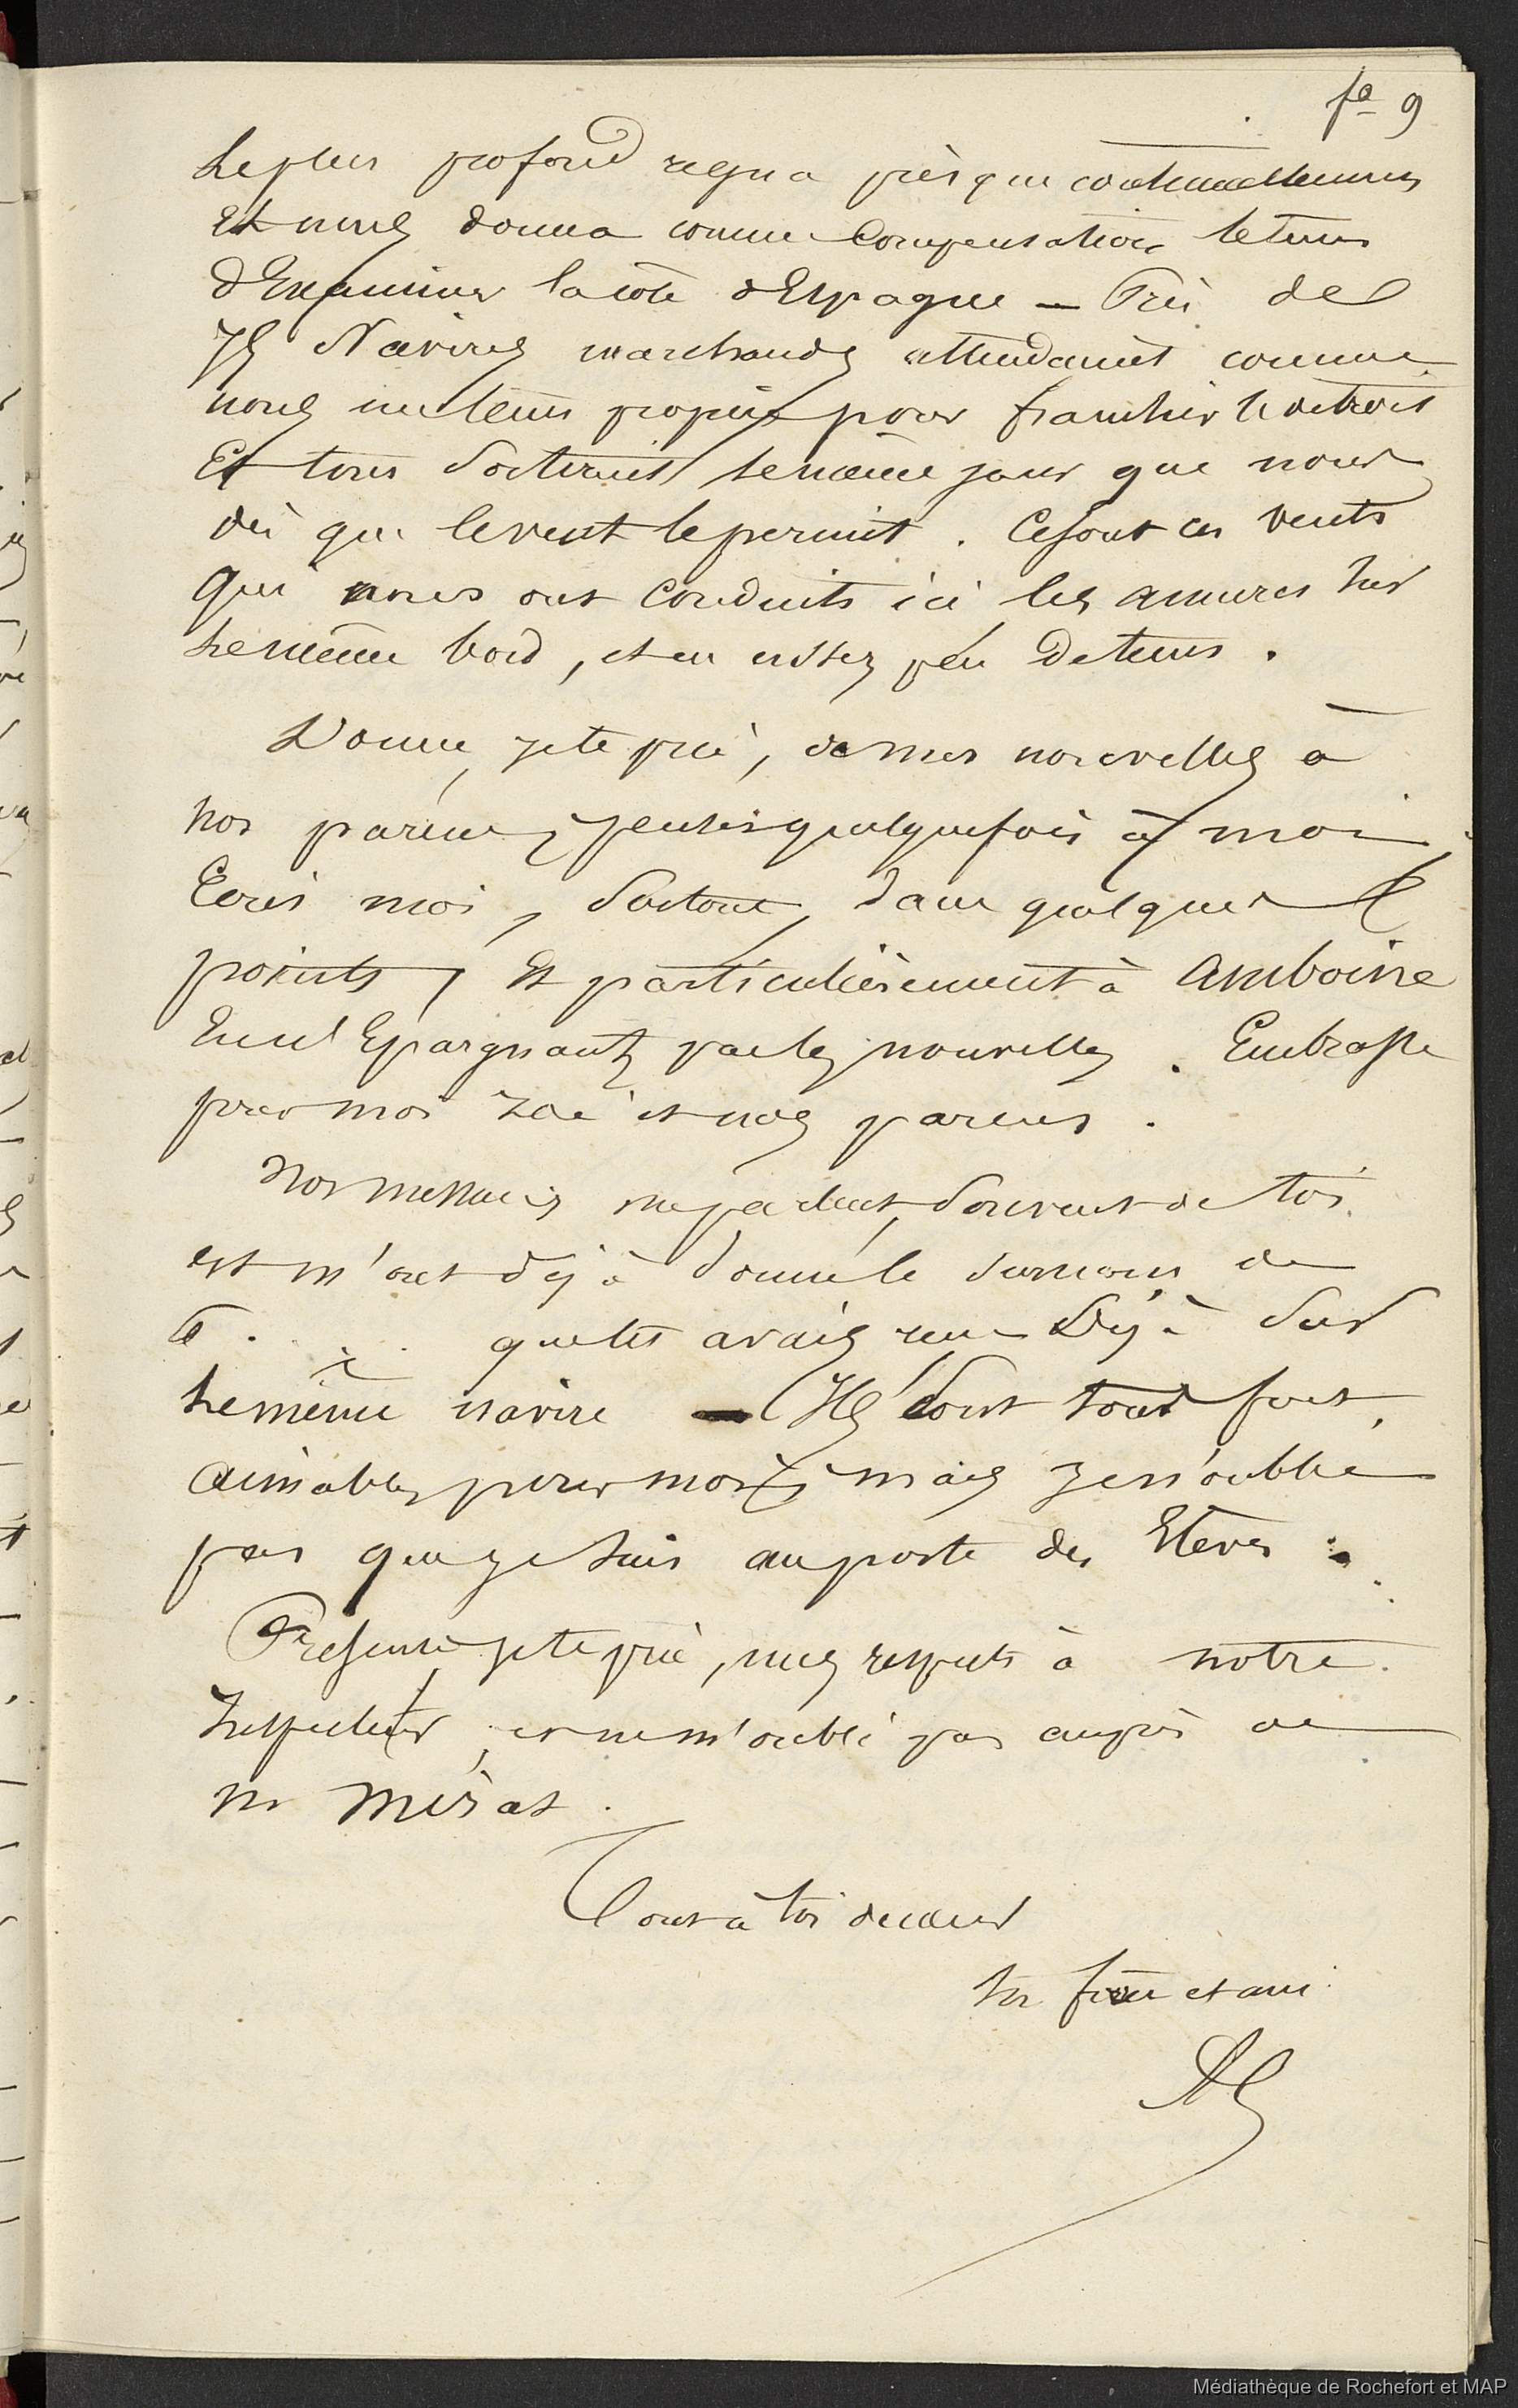 fo 9
le plus profond regna presque continuellement
et nous donna comme compensation le tems
d'Examiner la côte d'Espagne — Près de
75 Navires marchands attendaient comme
nous un tems propice pour franchir le detroit
Et tous sortirent le même jour que nous
dès que le vent le permit. Ce sont ces vents
qui nous ont conduits ici, les amures sur
le même bord, et en assez peu de tems.
Donne, je te prie, de mes nouvelles à
nos parens, penses quelquefois à moi,
Ecris moi, surtout, dans quelques
points, et particulièrement à Amboine
en n'Epargnant pas les nouvelles. Embrasse
pour moi Zoé et nos parens.
Nos messieurs me parlent souvent de toi
et m'ont déjà donné le surnom de
que tu avais reçu Déjà sur
le même navire — Ils sont tous fort
aimables pour moi, mais je n'oublie
pas que je suis au poste des Elèves.
Présente, je te prie, mes respects à notre
Inspecteur, et ne m'oublie pas auprès de
Mr Mérat.
Tout à toi de cœur
ton frère et ami